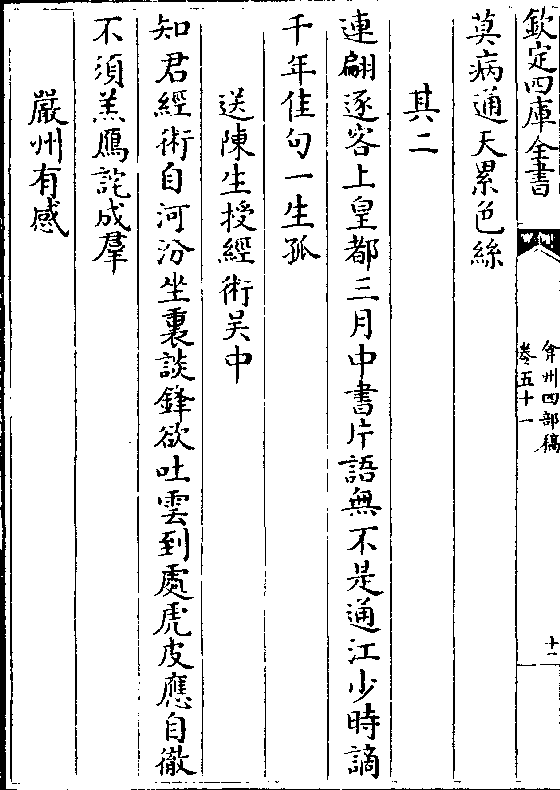 欽定四庫全書
弇州四部稿
卷五十一
十二
莫病通天累色絲
其二
連翩逐客上皇都三月中書片語無不是通江少時謫
千年佳句一生孤
送陳生授經術吳中
知君經術自河汾坐裏談鋒欲吐雲到處虎皮應自徹
不須羔鴈詫成羣
嚴州有感